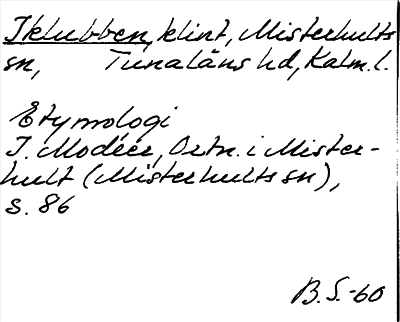 Iklubben, klint, Misterhults
sn, Tunaläns hd, Kalm. l.
Etymologi
I. Modéer, Ortn. i Mister-
hult (Misterhults sn),
s. 86
B. S. -60